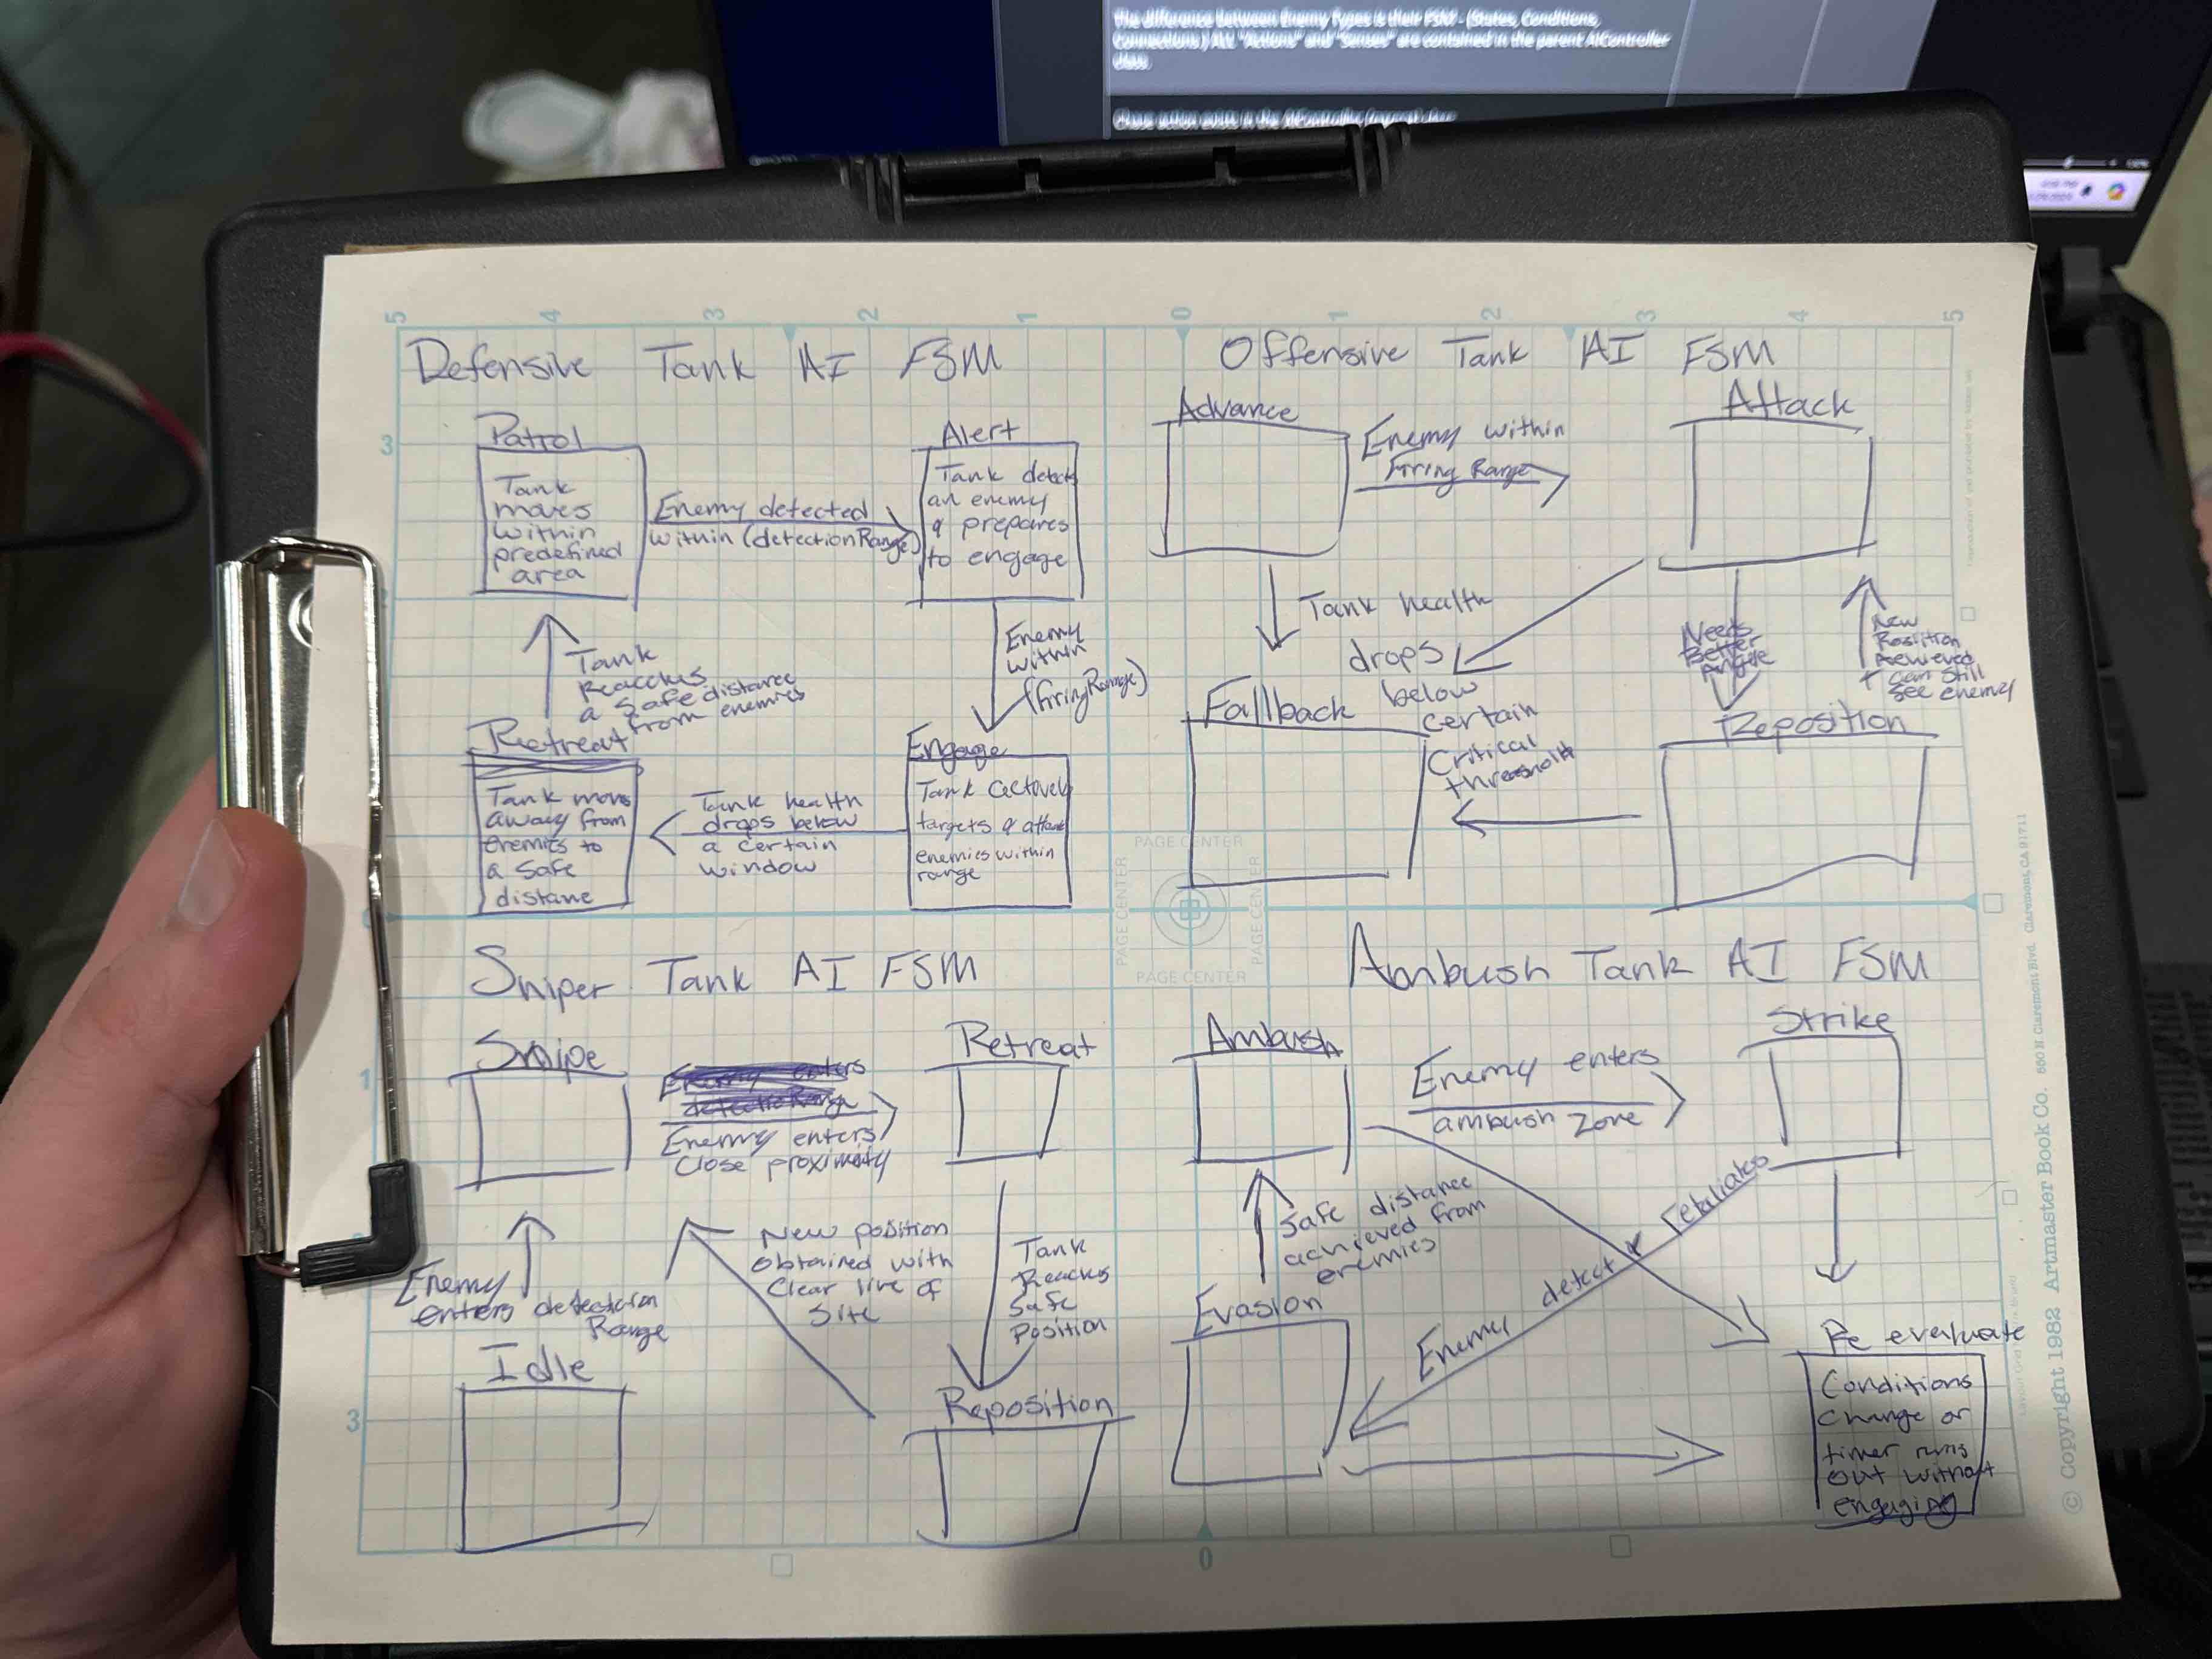 The difference between Enemy Types is their FSM - (States, Conditions,
Connections.) ALL "Actions" and "Senses" are contained in the parent AIController
class.
Chase action exists in the AIController (parent) class
5 4 3 2 1 0 1 2 3 4 5
Defensive Tank AI FSM
Patrol
Tank
moves
within
predefined
area
Enemy detected
within (detectionRange)
Alert
Tank detects
an enemy
& prepares
to engage
Enemy
within
(firingRange)
Engage
Tank actively
targets & attack
enemies within
range
Tank health
drops below
a certain
window
Retreat
Tank moves
away from
enemies to
a safe
distane
Tank
Reaches
a safe distance
from enemies
3
Offensive Tank AI FSM
Advance
Enemy within
Firing Range
Attack
Tank health
drops
below
certain
Critical
threshold
Needs
Better
Angle
New
Position
Achieved
+ can still
see enemy
Fallback
Reposition
PAGE CENTER
PAGE CENTER
PAGE CENTER
PAGE CENTER
Sniper Tank AI FSM
Snipe
Enemy enters
detectionRange
Enemy enters
Close proximity
Retreat
Tank
Reaches
Safe
Position
Reposition
New position
obtained with
Clear live of
Site
Enemy
enters detection
Range
Idle
1
3
0
Ambush Tank AI FSM
Ambush
Enemy enters
ambush zone
Strike
Enemy detect & retaliates
Safe distance
achieved from
enemies
Evasion
Re evaluate
Conditions
change or
timer runs
out without
engaging
© Copyright 1982 Artmaster Book Co. 550 N Claremont Blvd. Claremont, CA 91711